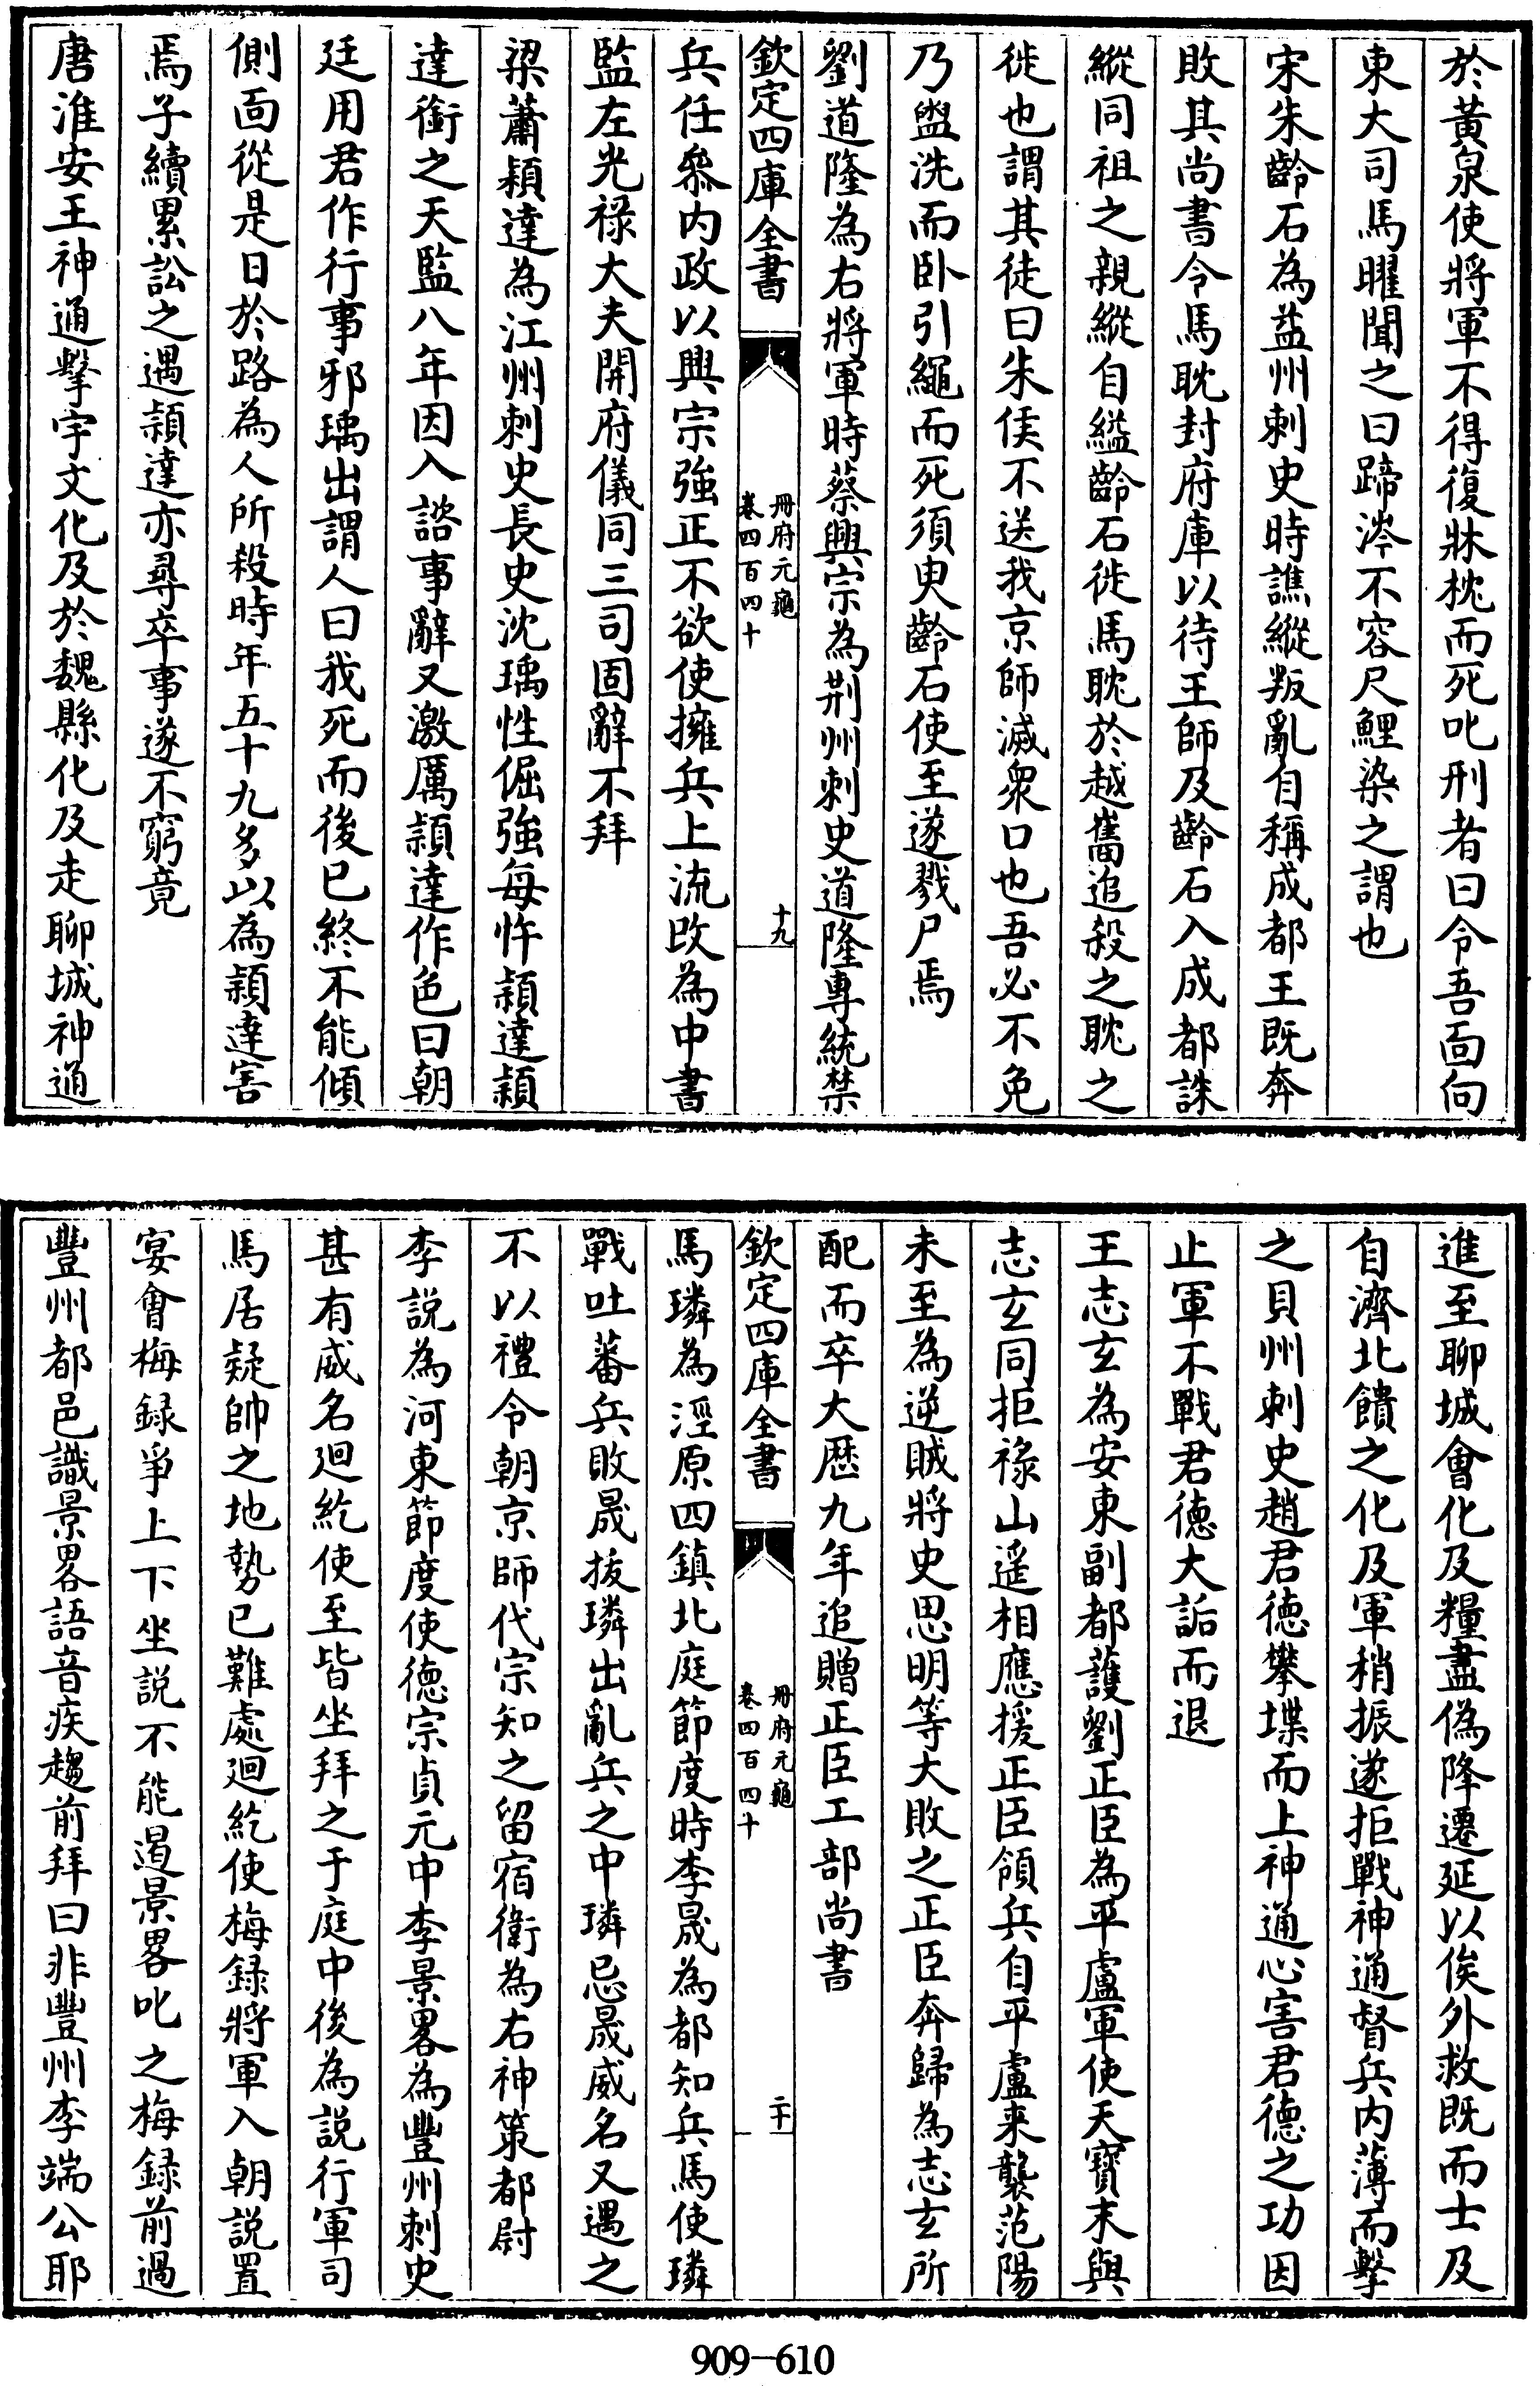 於黃泉使將軍不得復牀枕而死叱刑者曰令吾面向
東大司馬曜聞之曰蹄涔不容尺鯉染之謂也
宋朱齡石為益州刺史時譙縱叛亂自稱成都王既奔
敗其尚書令馬耽封府庫以待王師及齡石入成都誅
縱同祖之親縱自縊齡石徙馬耽於越巂追殺之耽之
徙也謂其徒曰朱侯不送我京師滅衆口也吾必不免
乃盥洗而卧引繩而死須臾齡石使至遂戮尸焉
劉道隆為右將軍時蔡興宗為荆州刺史道隆專統禁
欽定四庫全書
冊府元龜
卷四百四十
十九
兵任叅内政以興宗強正不欲使擁兵上流改為中書
監左光禄大夫開府儀同三司固辭不拜
梁蕭穎達為江州刺史長史沈瑀性倔強每忤穎達穎
達銜之天監八年因入諮事辭又激厲穎達作色曰朝
廷用君作行事邪瑀出謂人曰我死而後已終不能傾
側面從是日於路為人所殺時年五十九多以為穎達害
焉子續累訟之遇穎達亦尋卒事遂不窮竟
唐淮安王神通擊宇文化及於魏縣化及走聊城神通
進至聊城會化及糧盡偽降遷延以俟外救既而士及
自濟北饋之化及軍稍振遂拒戰神通督兵内薄而擊
之貝州刺史趙君徳攀堞而上神通心害君德之功因
止軍不戰君徳大詬而退
王志玄為安東副都護劉正臣為平盧軍使天寳末與
志玄同拒禄山遥相應援正臣領兵自平盧来襲范陽
未至為逆賊將史思明等大敗之正臣奔歸為志玄所
酖而卒大厯九年追贈正臣工部尚書
欽定四庫全書
冊府元龜
卷四百四十
二十
馬璘為涇原四鎮北庭節度時李晟為都知兵馬使璘
戰吐蕃兵敗晟拔璘出亂兵之中璘忌晟威名又遇之
不以禮令朝京師代宗知之留宿衛為右神策都尉
李説為河東節度使徳宗貞元中李景畧為豐州刺史
甚有威名廻紇使至皆坐拜之于庭中後為説行軍司
馬居疑帥之地勢已難處廻紇使梅録將軍入朝説置
宴會梅録爭上下坐説不能遏景畧叱之梅録前過
豐州都邑識景畧語音疾趨前拜曰非豐州李端公耶
909-610